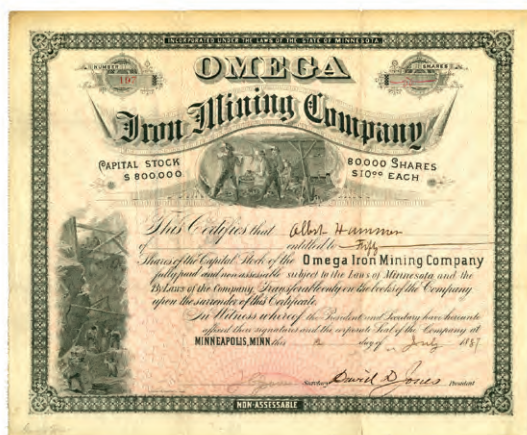 INCORPORATED UNDER THE LAWS OF THE STATE OF MINNESOTA.
NUMBER
SHARES
197
OMEGA
Iron Mining Company
CAPITAL STOCK
$800,000
80,000 SHARES
$10.00 EACH
This Certifies that Albert Hammer
of entitled to Fifty
Shares of the Capital Stock of the Omega Iron Mining Company
fully paid and non assessable subject to the Laws of Minnesota and the
By Laws of the Company, Transferable only on the books of the Company
upon the surrender of this Certificate.
In Witness whereof the President and Secretary have hereunto
affixed their signatures and the corporate Seal of the Company at
MINNEAPOLIS, MINN. this day of July 1887
Secretary David D Jones President
NON-ASSESSABLE